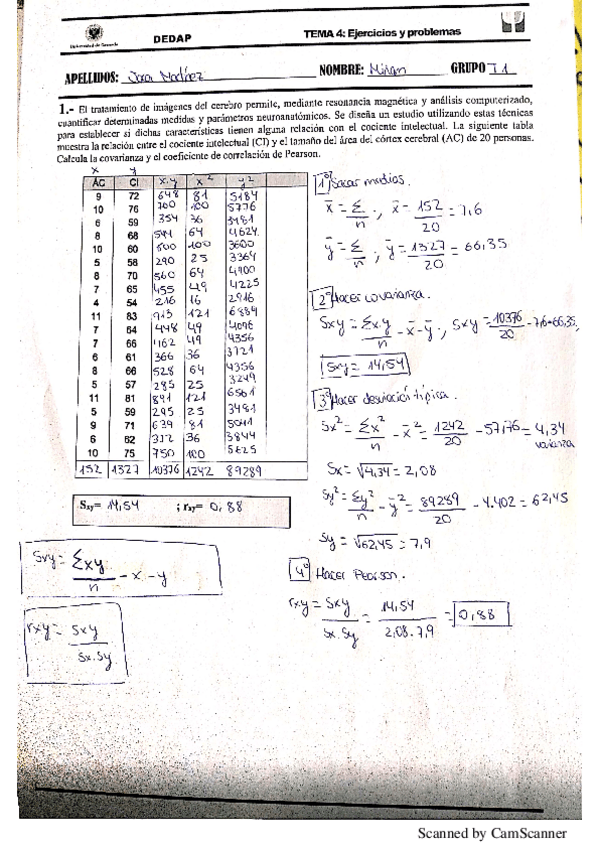 Universidad de Granada
DEDAP
TEMA 4: Ejercicios y problemas
APELLIDOS:
NOMBRE: Miriam GRUPO
1.- El tratamiento de imágenes del cerebro permite, mediante resonancia magnética y análisis computerizado,
cuantificar determinadas medidas y parámetros neuroanatómicos. Se diseña un estudio utilizando estas técnicas
para establecer si dichas características tienen alguna relación con el cociente intelectual. La siguiente tabla
muestra la relación entre el cociente intelectual (CI) y el tamaño del área del córtex cerebral (AC) de 20 personas.
Calcula la covarianza y el coeficiente de correlación de Pearson.
x y
AC CI x.y x² y²
9 72 648 81 5184
10 76 760 100 5776
6 59 354 36 3481
8 68 544 64 4624
10 60 600 100 3600
5 58 290 25 3364
8 70 560 64 4900
7 65 455 49 4225
4 54 216 16 2916
11 83 913 121 6889
7 64 448 49 4096
7 66 462 49 4356
6 61 366 36 3721
8 66 528 64 4356
5 57 285 25 3249
11 81 891 121 6561
5 59 295 25 3481
9 71 639 81 5041
6 62 372 36 3844
10 75 750 100 5625
152 1327 10376 1242 89289
Sxy= 14,54 ; rxy= 0,88
Sxy = Σxy/n - x - y
rxy = Sxy / Sx.Sy
1º Sacar medias.
x̄ = Σ/n ; x̄ = 152/20 = 7,6
ȳ = Σ/n ; ȳ = 1327/20 = 66,35
2º Hacer covarianza.
Sxy = Σx.y/n - x̄ - ȳ ; Sxy = 10376/20 - 7,6 • 66,35
Sxy = 14,54
3º Hacer desviación típica.
Sx² = Σx²/n - x̄² = 1242/20 - 57,76 = 4,34
varianza
Sx = √4,34 = 2,08
Sy² = Σy²/n - ȳ² = 89289/20 - 4.402 = 62,45
Sy = √62,45 = 7,9
4º Hacer Pearson.
rxy = Sxy / Sx.Sy = 14,54 / 2,08.7,9 = 0,88
Scanned by CamScanner